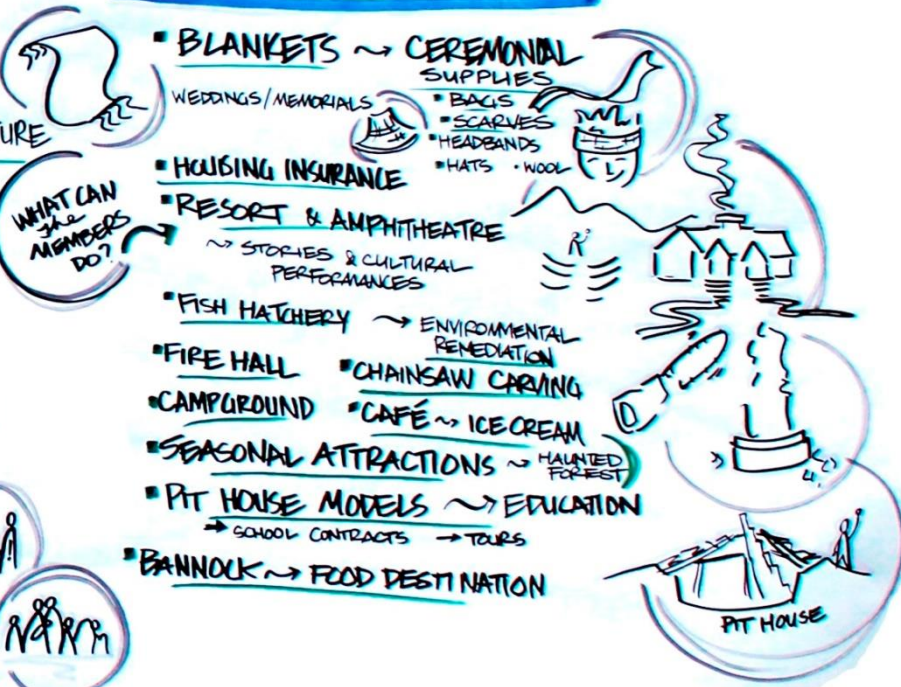 ▪ BLANKETS ~> CEREMONIAL
SUPPLIES
WEDDINGS/MEMORIALS
▪ BAGS
▪ SCARVES
▪ HEADBANDS
▪ HATS ▪ WOOL
URE
▪ HOUSING INSURANCE
WHAT CAN
the
MEMBERS
DO?
▪ RESORT & AMPHITHEATRE
~> STORIES & CULTURAL
PERFORMANCES
▪ FISH HATCHERY ~> ENVIRONMENTAL
REMEDIATION
▪ FIRE HALL ▪ CHAINSAW CARVING
▪ CAMPGROUND ▪ CAFÉ ~> ICE CREAM
▪ SEASONAL ATTRACTIONS ~> HAUNTED
FOREST
▪ PIT HOUSE MODELS ~> EDUCATION
→ SCHOOL CONTRACTS → TOURS
▪ BANNOCK ~> FOOD DESTINATION
PIT HOUSE